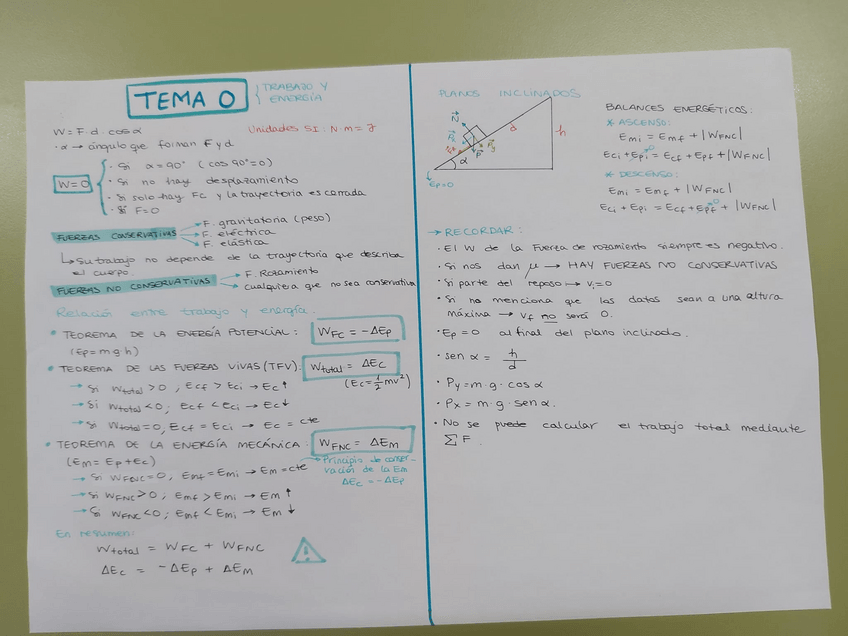 TEMA 0
TRABAJO Y
ENERGÍA
W = F · d · cos α
Unidades SI: N·m = J
· α → ángulo que forman F y d
W=0
· Si α = 90° (cos 90° = 0)
· Si no hay desplazamiento
· Si solo hay FC y la trayectoria es cerrada
· Si F=0
FUERZAS CONSERVATIVAS
→ F. gravitatoria (peso)
→ F. eléctrica
→ F. elástica
↳ Su trabajo no depende de la trayectoria que describa
el cuerpo.
FUERZAS NO CONSERVATIVAS
→ F. Rozamiento
→ cualquiera que no sea conservativa
Relación entre trabajo y energía.
* TEOREMA DE LA ENERGÍA POTENCIAL: W_FC = -ΔEp
(Ep = m·g·h)
* TEOREMA DE LAS FUERZAS VIVAS (TFV) W_total = ΔEc
(Ec = 1/2 mv²)
→ Si W_total > 0, Ecf > Eci → Ec ↑
→ Si W_total < 0; Ecf < Eci → Ec ↓
→ Si W_total = 0, Ecf = Eci → Ec = cte
* TEOREMA DE LA ENERGÍA MECÁNICA: W_FNC = ΔEm
(Em = Ep + Ec)
→ Si W_FNC = 0; Emf = Emi → Em = cte
→ Principio de conser-
vación de la Em
ΔEc = -ΔEp
→ Si W_FNC > 0; Emf > Emi → Em ↑
→ Si W_FNC < 0; Emf < Emi → Em ↓
En resumen:
W_total = W_FC + W_FNC
ΔEc = -ΔEp + ΔEm
PLANOS INCLINADOS
N
d
h
α
P
Py
Ep=0
BALANCES ENERGÉTICOS:
* ASCENSO:
Emi = Emf + |W_FNC|
Eci + Epi⁰ = Ecf + Epf + |W_FNC|
* DESCENSO:
Emi = Emf + |W_FNC|
Eci + Epi = Ecf + Epf⁰ + |W_FNC|
→ RECORDAR:
· El W de la Fuerza de rozamiento siempre es negativo.
· Si nos dan μ → HAY FUERZAS NO CONSERVATIVAS
· Si parte del reposo → vi = 0
· Si no menciona que los datos sean a una altura
máxima → vf no será 0.
· Ep = 0 al final del plano inclinado.
· sen α = h/d
· Py = m·g·cos α
· Px = m·g·sen α.
· No se puede calcular el trabajo total mediante
ΣF.